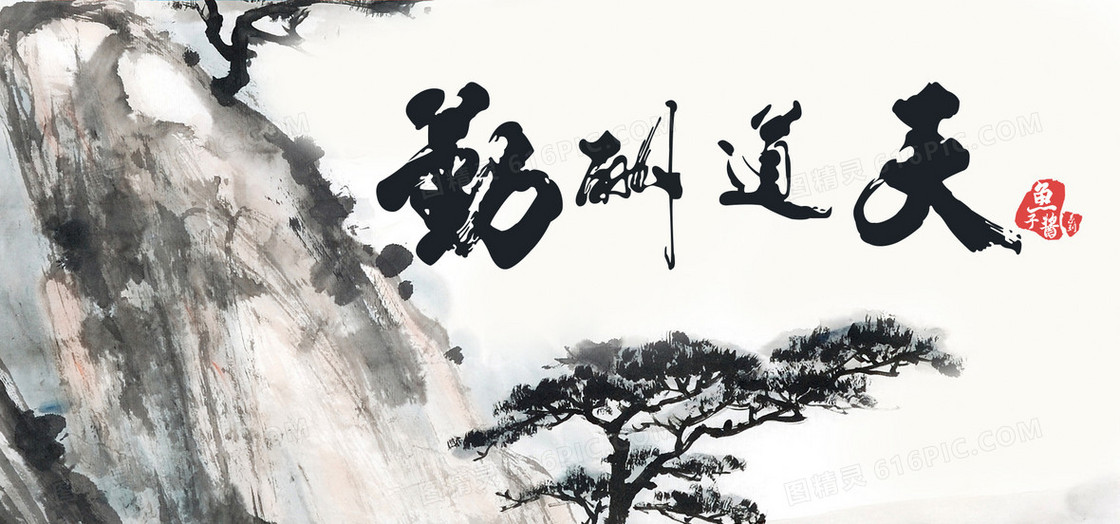 天道酬勤
魚子醬
图精灵 616PIC.COM
图精灵 616PIC.COM
图精灵 616PIC.COM
图精灵 616PIC.COM